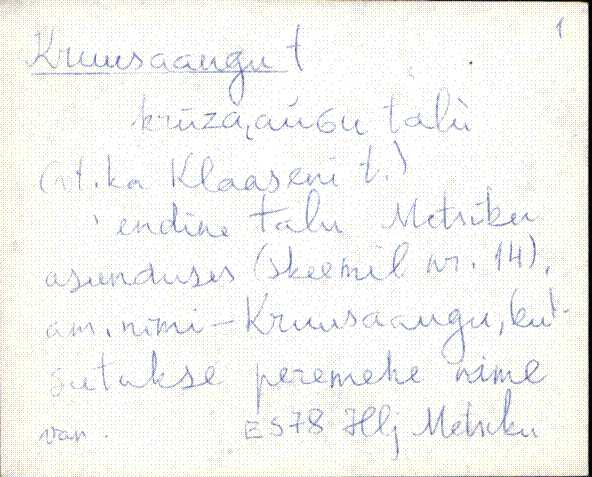 1
Kruusaaugu t
krūza͕auGu talu
(vt. ka Klaaseni t.)
endine talu Metsiku
asunduses (skeemil nr. 14),
am. nimi – Kruusaaugu, kut-
sutakse peremehe nime
van. ES78 Hlj Metsiku